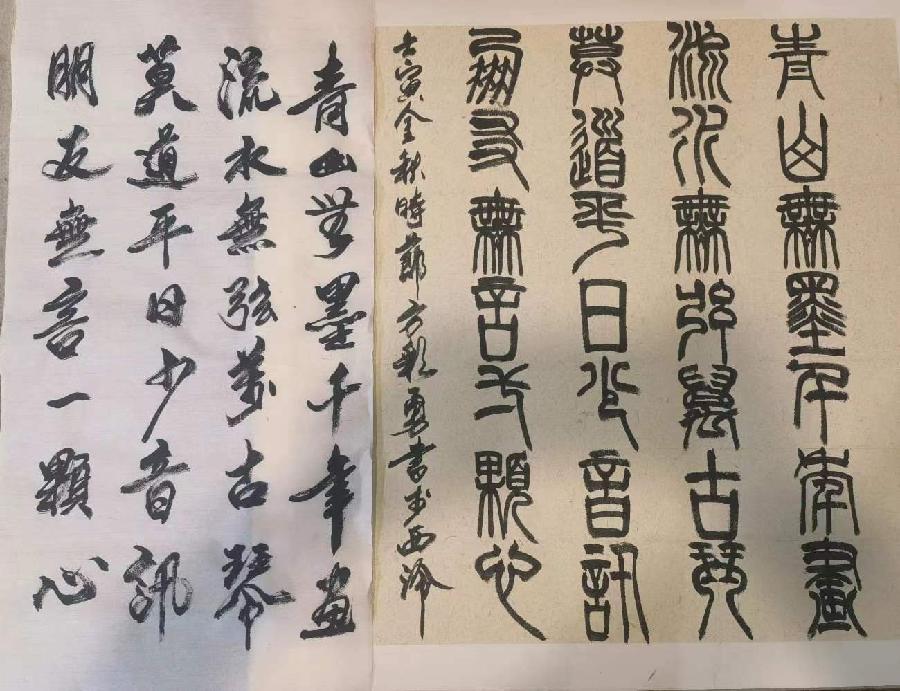 青山無墨千年畫
流水無弦萬古琴
莫道平日少音訊
朋友無言一顆心
壬寅金秋時節方彩勇書於西泠
青山無墨千年畫
流水無弦萬古琴
莫道平日少音訊
朋友無言一顆心